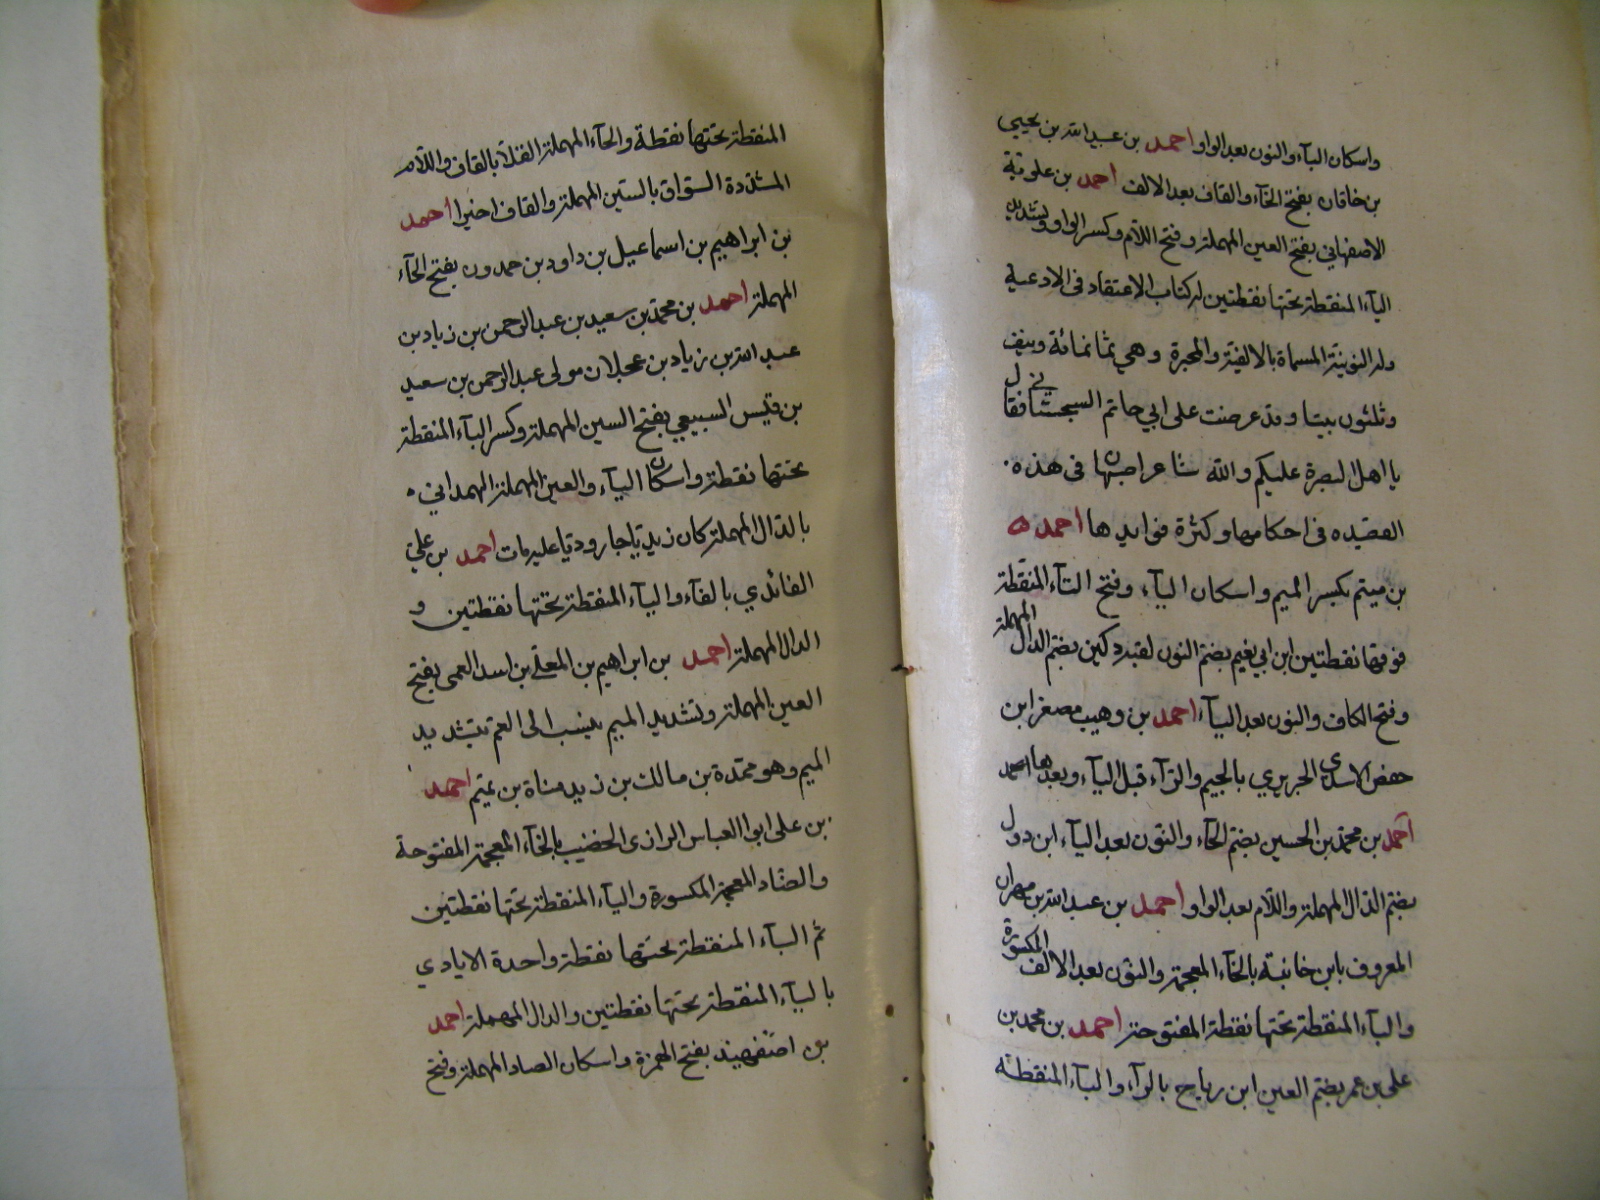 واسكان الياء والنون بعد الواو احمد بن عبد الله بن يحيى
بن خاقان بفتح الخاء والقاف بعد الالف احمد بن علوية
الاصفهاني بفتح العين المهملة وفتح اللام وكسر الواو وتشديد
الياء المنقطة تحتها نقطتين له كتاب الاعتقاد في الادعية
وله النونية المسماة بالالفية والمحبرة وهي ثمانمائة ونيف
وثلثون بيتا وقد عرضت على ابي حاتم السجستاني فقال
يا اهل البصرة عليكم والله شاعر اصبهان في هذه
القصيده في احكامها وكثرة فوايدها احمد
بن ميتم بكسر الميم واسكان الياء وفتح التاء المنقطة
فوقها نقطتين ابن ابي نعيم بضم النون لقبه دكين بضم الدال المهملة
وفتح الكاف والنون بعد الياء احمد بن وهيب مصغر ابن
حفص الاسدي الجريري بالجيم والراء قبل الياء وبعدها احمد
احمد بن محمد بن الحسين بضم الحاء والنون بعد الياء ابن دول
بضم الدال المهملة واللام بعد الواو احمد بن عبد الله بن مهران
المعروف بابن خانبة بالخاء المعجمة والنون بعد الالف المكسورة
والباء المنقطة تحتها نقطة المفتوحة احمد بن محمد بن
علي بن عمر بضم العين ابن رباح بالراء والباء المنقطة
المنقطة تحتها نقطة والحاء المهملة القلا بالقاف واللام
المشددة السواق بالسين المهملة والقاف اخيرا احمد
بن ابراهيم بن اسماعيل بن داود بن حمدون بفتح الحاء
المهملة احمد بن محمد بن سعيد بن عبد الرحمن بن زياد بن
عبد الله بن زياد بن عجلان مولى عبد الرحمن بن سعيد
بن قيس السبيعي بفتح السين المهملة وكسر الباء المنقطة
تحتها نقطة واسكان الياء والعين المهملة الهمداني
بالدال المهملة كان زيديا جاروديا عليه مات احمد بن علي
الفائدي بالفاء والياء المنقطة تحتها نقطتين و
الدال المهملة احمد بن ابراهيم بن المعلى بن اسد العمى بفتح
العين المهملة وتشديد الميم ينسب الى العم بتشديد
الميم وهو مرة بن مالك بن زيد مناة بن تميم احمد
بن علي ابو العباس الرازى الخضيب بالخاء المعجمة المفتوحة
والضاد المعجمة المكسورة والياء المنقطة تحتها نقطتين
ثم الباء المنقطة تحتها نقطة واحدة الايادي
بالياء المنقطة تحتها نقطتين والدال المهملة احمد
بن اصفهبد بفتح الهمزة واسكان الصاد المهملة وفتح